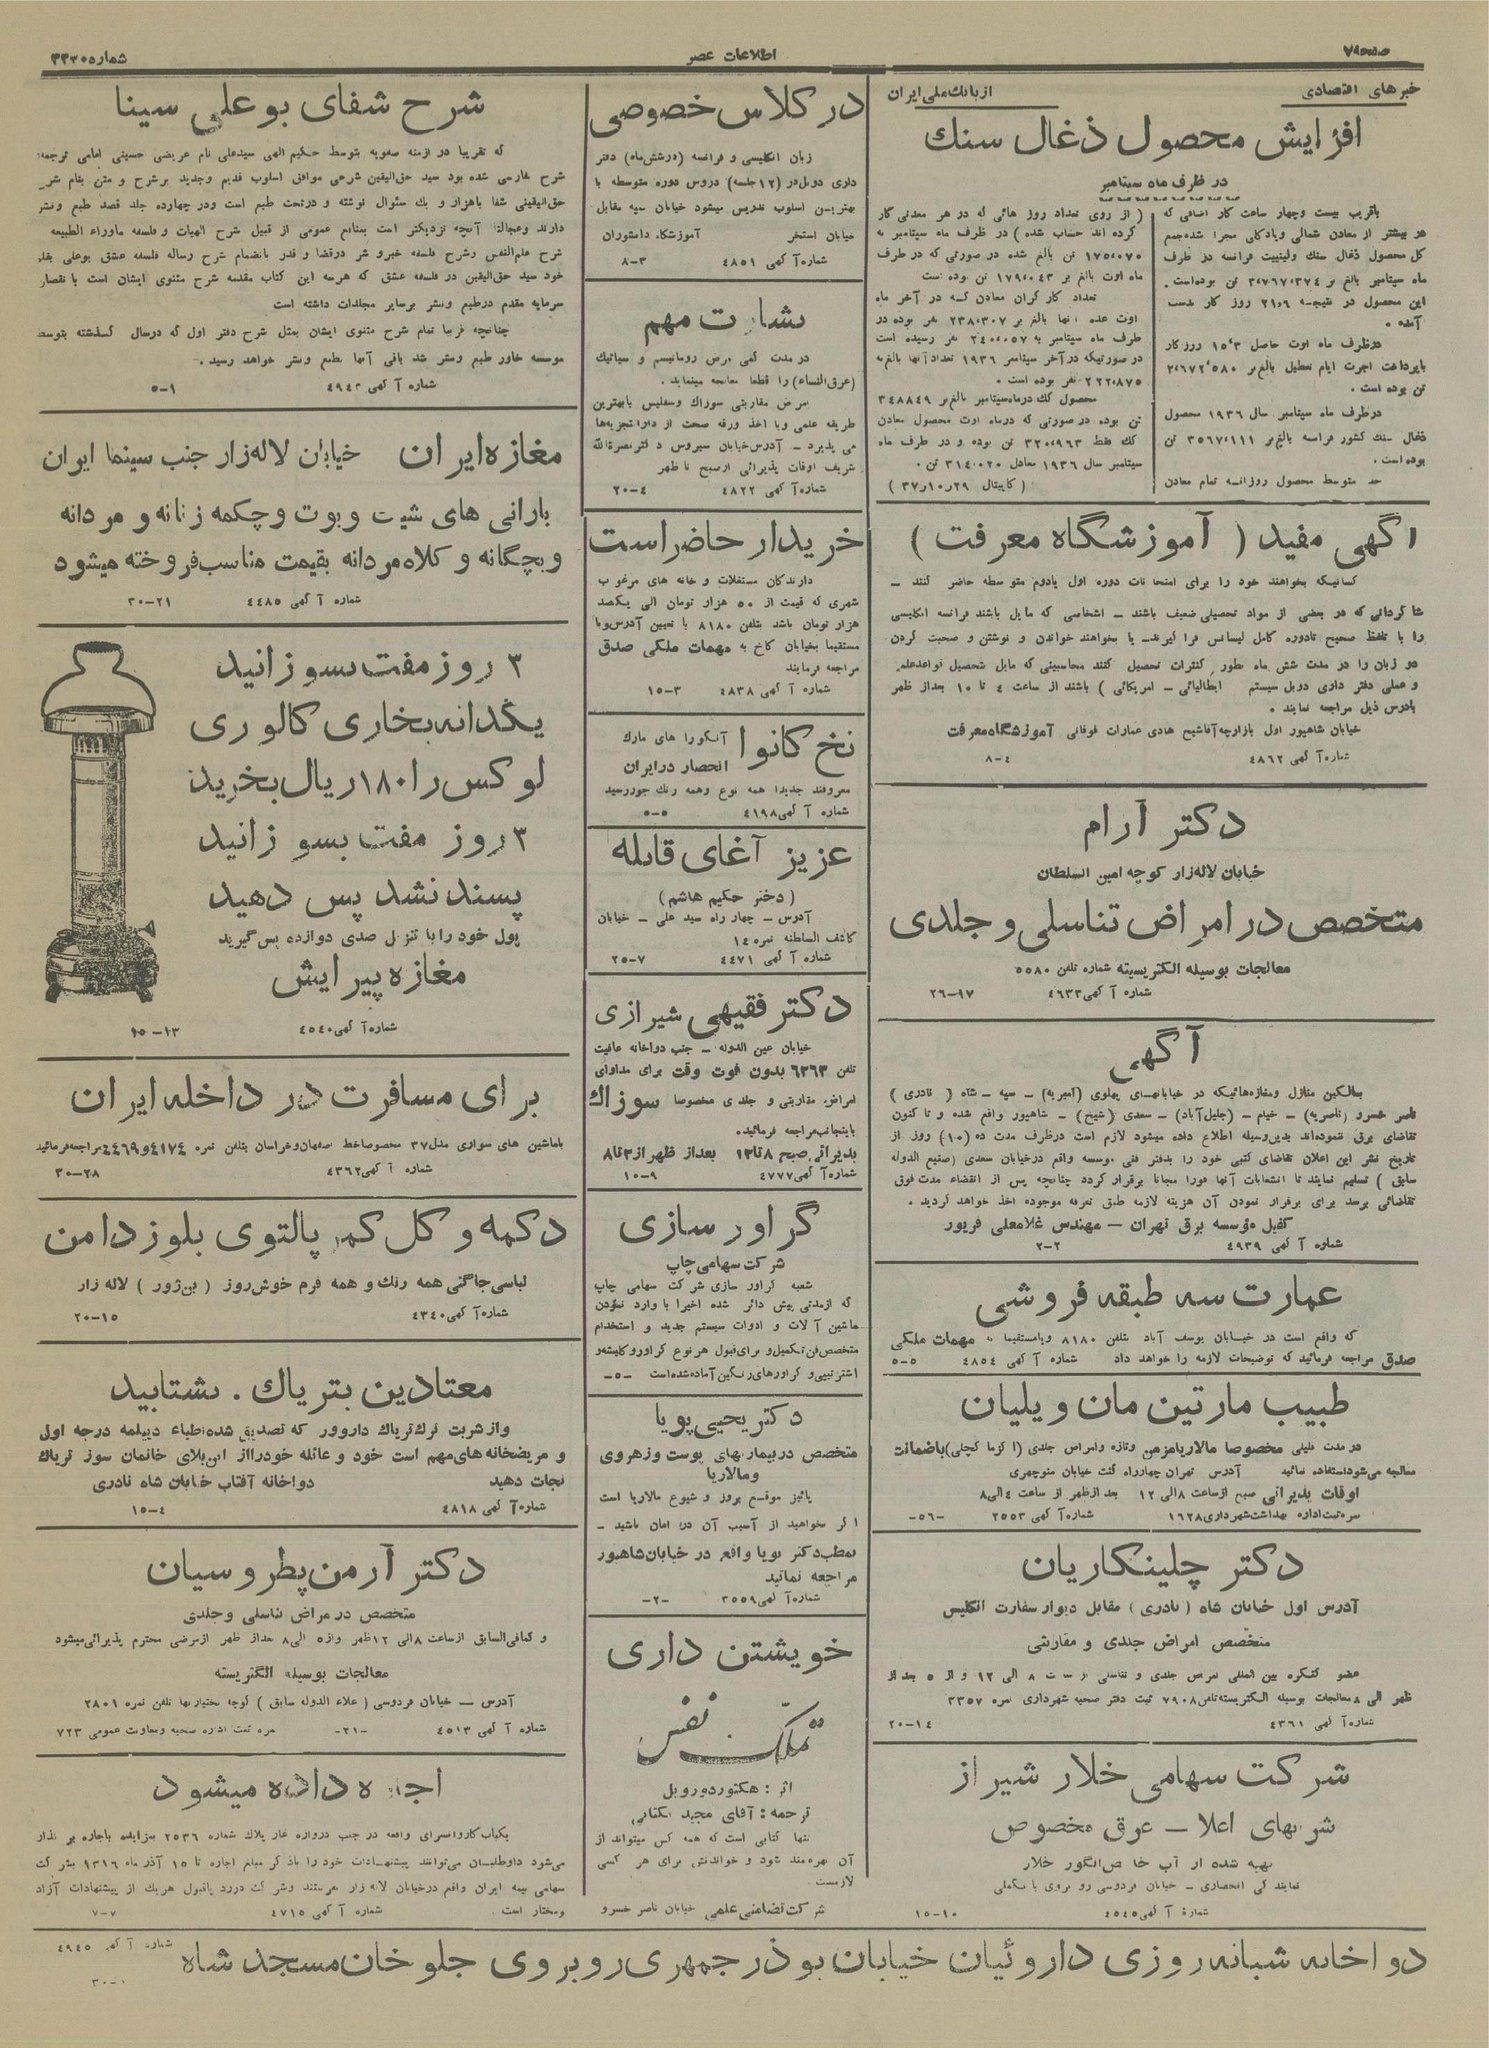 صفحه ۷
اطلاعات عصر
شماره ۳۳۳۰
خبرهای اقتصادی
از بانك ملی ایران
افزایش محصول ذغال سنك
در ظرف ماه سپتامبر
باقریب بیست وچهار ساعت کار اضافی که
در بیشتر از معادن شمالی وپادکلی مجرا شده جمع
کل محصول ذغال سنك ولینییت فرانسه در ظرف
ماه سپتامبر بالغ بر ۳٬۷۶۷٬۳۷۴ تن بوده است.
این محصول در نتیجه ۲۱٫۶ روز کار بدست
آمده.
درظرف ماه اوت حاصل ۱۵٫۳ روز کار
باپرداخت اجرت ایام تعطیل بالغ بر ۲٬۶۷۲٬۵۸۰
تن بوده است.
درظرف ماه سپتامبر سال ۱۹۳۶ محصول
ذغال سنك کشور فرانسه بالغ بر ۳۵۶۷٬۱۱۱ تن
بوده است.
حد متوسط محصول روزانه تمام معادن
( از روی تعداد روز هائی که در هر معدنی کار
کرده اند حساب شده ) در ظرف ماه سپتامبر به
۱۷۵٬۰۷۰ تن بالغ شده در صورتی که در ظرف
ماه اوت بالغ بر ۱۷۹٬۰۴۳ تن بوده است
تعداد کارگران معادن که در آخر ماه
اوت عده آنها بالغ بر ۲۳۸٬۳۰۷ نفر بوده در
ظرف ماه سپتامبر به ۲۴۰٬۰۵۷ نفر رسیده است
در صورتیکه در آخر سپتامبر ۱۹۳۶ تعداد آنها بالغ به
۲۲۲٬۸۷۵ نفر بوده است.
محصول كك درماه سپتامبر بالغ بر ۳۴۸۸۴۹
تن بوده در صورتی که درماه اوت محصول معادن
كك فقط ۳۲۰٬۹۶۳ تن بوده و در ظرف ماه
سپتامبر سال ۱۹۳۶ معادل ۳۱۴٬۰۲۰ تن.
( کاپیتال ۲۹ ر ۱۰ ر ۳۷ )
آگهی مفید ( آموزشگاه معرفت )
کسانیکه بخواهند خود را برای امتحانات دوره اول یادوم متوسطه حاضر کنند –
شاگردانی که در بعضی از مواد تحصیلی ضعیف باشند – اشخاصی که مایل باشند فرانسه انگلیسی
را با تلفظ صحیح تادوره کامل لیسانس فرا گیرند – یا بخواهند خواندن و نوشتن و صحبت کردن
دو زبان را در مدت شش ماه بطور کنترات تحصیل کنند محاسبینی که مایل بتحصیل قواعد علم
و عملی دفتر داری دوبل سیستم ایطالیائی – امریکائی ) باشند از ساعت ٤ تا ۱۰ بعداز ظهر
بادرس ذیل مراجعه نمایند.
خیابان شاهپور اول بازارچه آقاشیخ هادی عمارات فوقانی آموزشگاه معرفت
شماره آگهی ٤۸٦۲ ٤–۸
دکتر آرام
خیابان لاله زار کوچه امین السلطان
متخصص در امراض تناسلی و جلدی
معالجات بوسیله الکتریسیته شماره تلفن ۵۵۸۰
شماره آگهی ٤٦۳۳ ۱۷–۲٦
آگهی
بمالکین منازل ومغازه هائیکه در خیابانهای پهلوی (امیریه) – سپه – شاه ( نادری )
ناصر خسرو (ناصریه) – خیام – (جلیل آباد) – سعدی (شیخ) – شاهپور واقع شده و تا کنون
تقاضای برق ننموده اند بدین وسیله اطلاع داده میشود لازم است درظرف مدت ده (۱۰) روز از
تاریخ نشر این اعلان تقاضای کتبی خود را بدفتر فنی موسسه واقع درخیابان سعدی (صنیع الدوله
سابق ) تسلیم نمایند تا انشعابات آنها فورا مجانا برقرار گردد چنانچه پس از انقضاء مدت فوق
تقاضائی برسد برای برقرار نمودن آن هزینه لازمه طبق تعرفه موجوده اخذ خواهد گردید.
کفیل مؤسسه برق تهران – مهندس غلامعلی فریور
شماره آگهی ٤۹۳۹ ۲–۲
عمارت سه طبقه فروشی
که واقع است در خیابان یوسف آباد بتلفن ۸۱۸۰ ویامستقیما به مهمات ملکی
صدق مراجعه فرمائید که توضیحات لازمه را خواهد داد شماره آگهی ٤۸۵٤ ۵–۵
طبیب مارتین مان ویلیان
در مدت قلیلی مخصوصا مالاریا مزمن وتازه وامراض جلدی (اکزما کچلی) باضمانت
معالجه می شود استفاده نمائید آدرس تهران چهارراه کنت خیابان منوچهری
اوقات پذیرائی صبح ازساعت ۸ الی ۱۲ بعدازظهر از ساعت ٤ الی ۸
نمره ثبت اداره بهداشت شهرداری ۱٦۲۸ شماره آگهی ۲۵۵۳ –۵٦–
دکتر چلینکاریان
آدرس اول خیابان شاه (نادری) مقابل دیوار سفارت انگلیس
متخصص امراض جلدی و مقاربتی
عضو کنگره بین المللی امراض جلدی و تناسلی از ساعت ۸ الی ۱۲ و از ۵ بعد از
ظهر الی ۸ معالجات بوسیله الکتریسته تلفن ۷۹۰۸ ثبت دفتر صحیه شهرداری نمره ۳۳۵۷
شماره آگهی ٤۳٦۱ ۱٤–۲۰
شرکت سهامی خلار شیراز
شرابهای اعلا – عرق مخصوص
تهیه شده از آب خاص انگور خلار
نماینده گی انحصاری – خیابان فردوسی رو بروی بانکملی
شماره آگهی ٤۵٤۵ ۱۰–۱۵
در کلاس خصوصی
زبان انگلیسی و فرانسه (درشش ماه) دفتر
داری دوبل در (۱۲ جلسه) دروس دوره متوسطه با
بهترین اسلوب تدریس میشود خیابان سپه مقابل
خیابان استخر آموزشگاه دانشوران
شماره آگهی ٤۸۵۱ ۳–۸
بشارت مهم
در مدت کمی مرض روماتیسم و سیاتیك
(عرق النساء) را قطعا معالجه مینماید.
مرض مقاربتی سوزاك وسفلیس بابهترین
طریقه علمی وبا اخذ ورقه صحت از دارالتجزیه ها
می پذیرد – آدرس خیابان سیروس دکتر نصرة الله
شریف اوقات پذیرائی ازصبح تا ظهر
شماره آگهی ٤۸۲۲ ٤–۲۰
خریدار حاضر است
دارندگان مستغلات و خانه های مرغوب
شهری که قیمت از ۵۰ هزار تومان الی یکصد
هزار تومان باشد بتلفن ۸۱۸۰ با تعیین آدرس ویا
مستقیما بخیابان کاخ به مهمات ملکی صدق
مراجعه فرمایند
شماره آگهی ٤۸۳۸ ۳–۱۵
نخ کانوا آنگورا های مارك
انحصار در ایران
معروفند جدیدا همه نوع وهمه رنك جور رسید
شماره آگهی ٤۱۹۸ ۵–۵
عزیز آغای قابله
(دختر حکیم هاشم)
آدرس – چهار راه سید علی – خیابان
کاشف السلطنه نمره ۱٤
شماره آگهی ٤٤۷۱ ۷–۲۵
دکتر فقیهی شیرازی
خیابان عین الدوله – جنب دواخانه عافیت
تلفن ٦۳٦۳ بدون فوت وقت برای مداوای
امراض مقاربتی و جلدی مخصوصا سوزاك
باینجانب مراجعه فرمائید.
پذیرائی صبح ۸ تا ۱۲ بعداز ظهر از ۳ تا ۸
شماره آگهی ٤۷۷۷ ۹–۱۰
گراور سازی
شرکت سهامی چاپ
شعبه گراور سازی شرکت سهامی چاپ
که ازمدتی پیش دائر شده اخیرا با وارد نمودن
ماشین آلات و ادوات سیستم جدید و استخدام
متخصص فن تکمیل و برای قبول هر نوع گراور و کلیشه و
اشتر تیبی و گراورهای رنگین آماده شده است –۵–
دکتر یحیی پویا
متخصص در بیماریهای پوست وزهروی
ومالاریا
پائیز موقع بروز و شیوع مالاریا است
اگر بخواهید از آسیب آن در امان باشید –
بمطب دکتر پویا واقع در خیابان شاهپور
مراجعه نمائید
شماره آگهی ۳۵۵۹ –۲–
خویشتن داری
تملّک نفس
اثر : هکتور دورویل
ترجمه : آقای مجید یکتائی
تنها کتابی است که همه کس میتواند از
آن بهره مند شود و خواندنش برای هر کسی
لازمست
شرکت تضامنی علمی خیابان ناصر خسرو
شرح شفای بوعلی سینا
که تقریبا در ازمنه صفویه بتوسط حکیم الهی سیدعلی نام عریضی حسینی امامی ترجمه
شرح بفارسی شده بود سید حق الیقین شرحی موافق اسلوب قدیم وجدید برشرح و متن بنام شرح
حق الیقینی شفا باهزار و یك سئوال نوشته و درتحت طبع است ودر چهارده جلد قصد طبع ونشر
دارند وعجالتا آنچه نزدیکتر است بمنافع عمومی از قبیل شرح الهیات و فلسفه ماوراء الطبیعه
شرح علم النفس وشرح فلسفه خیر و شر در قضا و قدر بانضمام شرح رساله فلسفه عشق بوعلی بقلم
خود سید حق الیقین در فلسفه عشق که هر سه این کتاب مقدمه شرح مثنوی ایشان است با نقصان
سرمایه مقدم درطبع ونشر برسایر مجلدات داشته است
چنانچه قریبا تمام شرح مثنوی ایشان بمثل شرح دفتر اول که درسال گذشته بتوسط
موسسه خاور طبع ونشر شد باقی آنها بطبع ونشر خواهد رسید.
شماره آگهی ۱–۵
مغازه ایران خیابان لاله زار جنب سینما ایران
بارانی های شیك و بوت و چکمه زنانه و مردانه
و بچگانه و کلاه مردانه بقیمت مناسب فروخته میشود
شماره آگهی ٤٤۸۵ ۲۱–۳۰
۳ روز مفت بسوزانید
یکدانه بخاری کالوری
لوکس را ۱۸۰ ریال بخرید
۳ روز مفت بسوزانید
پسند نشد پس دهید
پول خود را با تنزل صدی دوازده پس گیرید
مغازه پیرایش
شماره آگهی ٤۵٤۰ ۱۳–۱۵
برای مسافرت در داخله ایران
باماشین های سواری مدل ۳۷ مخصوصا خط اصفهان و خراسان بتلفن نمره ٤۱۷٤ و ۲٤٦۹ مراجعه فرمائید
شماره آگهی ٤۳٦۲ ۲۸–۳۰
دکمه و گل کمر پالتوی بلوز دامن
لباسی جاگتی همه رنك و همه فرم خوش روز ( بن ژور ) لاله زار
شماره آگهی ٤۳٤۰ ۱۵–۲۰
معتادین بتریاك . بشتابید
و از شربت ترك تریاك داروور که تصدیق شده اطباء دیپلمه درجه اول
و مریضخانه های مهم است خود و عائله خودرا از این بلای خانمان سوز تریاك
نجات دهید دواخانه آفتاب خیابان شاه نادری
شماره آگهی ٤۸۱۸ ٤–۱۵
دکتر آرمن پطروسیان
متخصص در مراض تناسلی وجلدی
و کمافی السابق ازساعت ۸ الی ۱۲ ظهر واز ۵ الی ۸ بعداز ظهر ازمرضی محترم پذیرائی میشود
معالجات بوسیله الکتریسته
آدرس – خیابان فردوسی ( علاء الدوله سابق ) کوچه بختیاریها تلفن نمره ۲۸۰۱
شماره آگهی ٤۵۱۳ –۲۱– نمره ثبت اداره صحیه ومعاونت عمومی ۷۲۳
اجاره داده میشود
یکباب کاروانسرای واقعه در جنب دروازه غار پلاك شماره ۲۵۳٦ بمزایده باجاره واگذار
می شود داوطلبان می توانند پیشنهادات خود را باذکر مبلغ اجاره تا ۱۵ آذر ماه ۱۳۱٦ بشرکت
سهامی بیمه ایران واقع درخیابان لاله زار بفرستند وشرکت دررد یاقبول هریك از پیشنهادات آزاد
ومختار است. شماره آگهی ٤۷۱۵ ۷–۷
دواخانه شبانه روزی داروئیان خیابان بوذرجمهری روبروی جلوخان مسجد شاه
شماره آگهی ٤۹٤۵
۱–۳۰